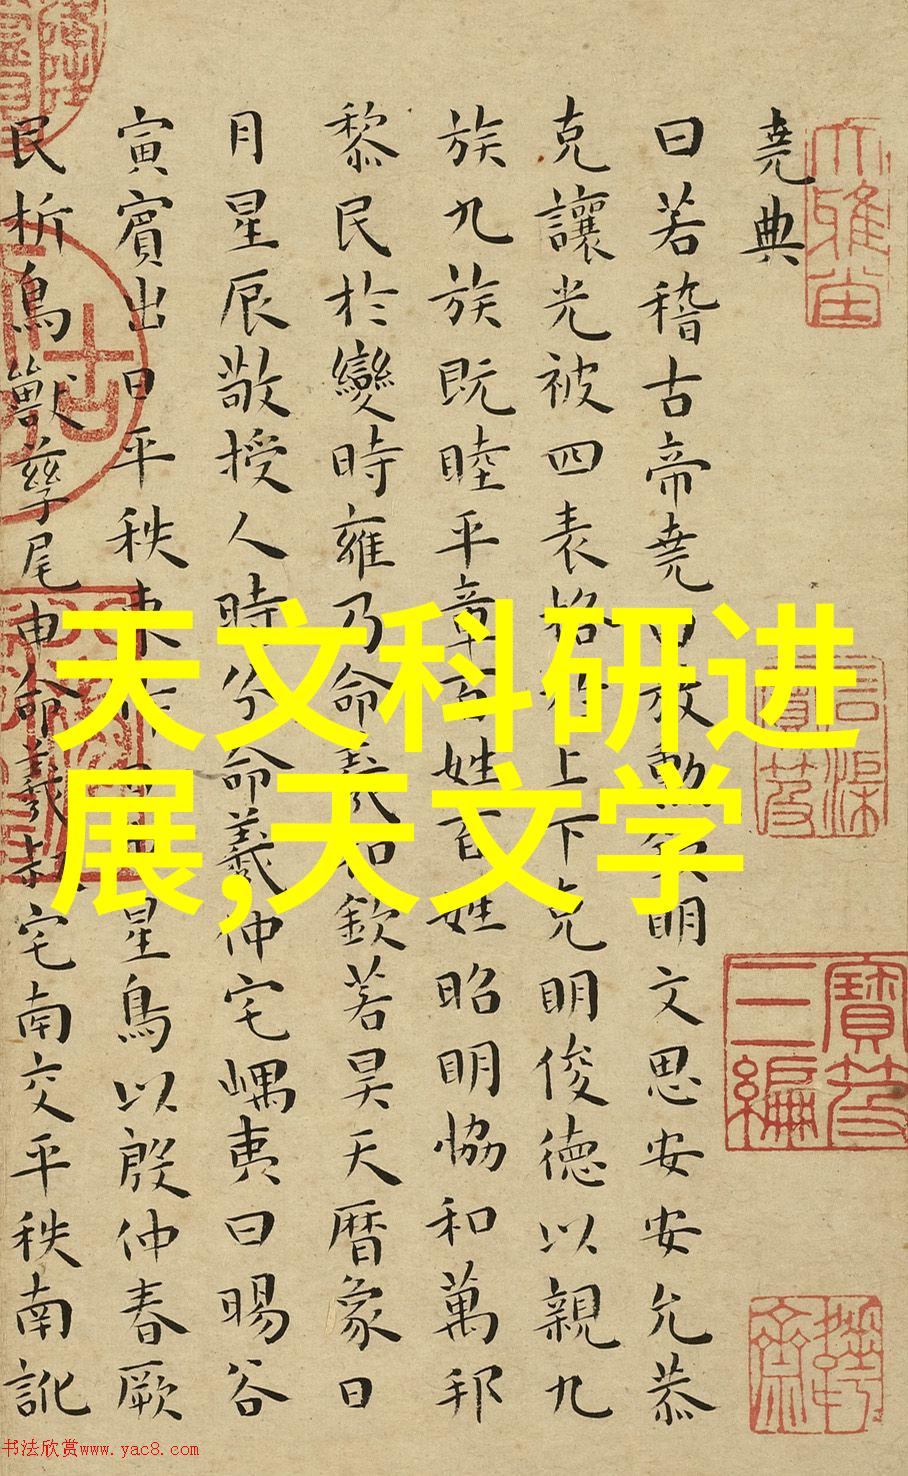 尭典
曰若稽古帝尭曰放勳欽明文思安安允恭
克讓光被四表格於上下克明俊德以親九
族九族既睦平章百姓百姓昭明恊和萬邦
黎民於變時雍乃命羲和欽若昊天暦象日
月星辰敬授人時分命羲仲宅嵎夷曰暘谷
寅賓出日平秩東作日中星鳥以殷仲春厥
民析鳥獸孳尾申命羲叔宅南交平秩南訛
天文科研进
展,天文学
寶笈
三編
石渠
寶笈
书法欣赏www.yac8.com